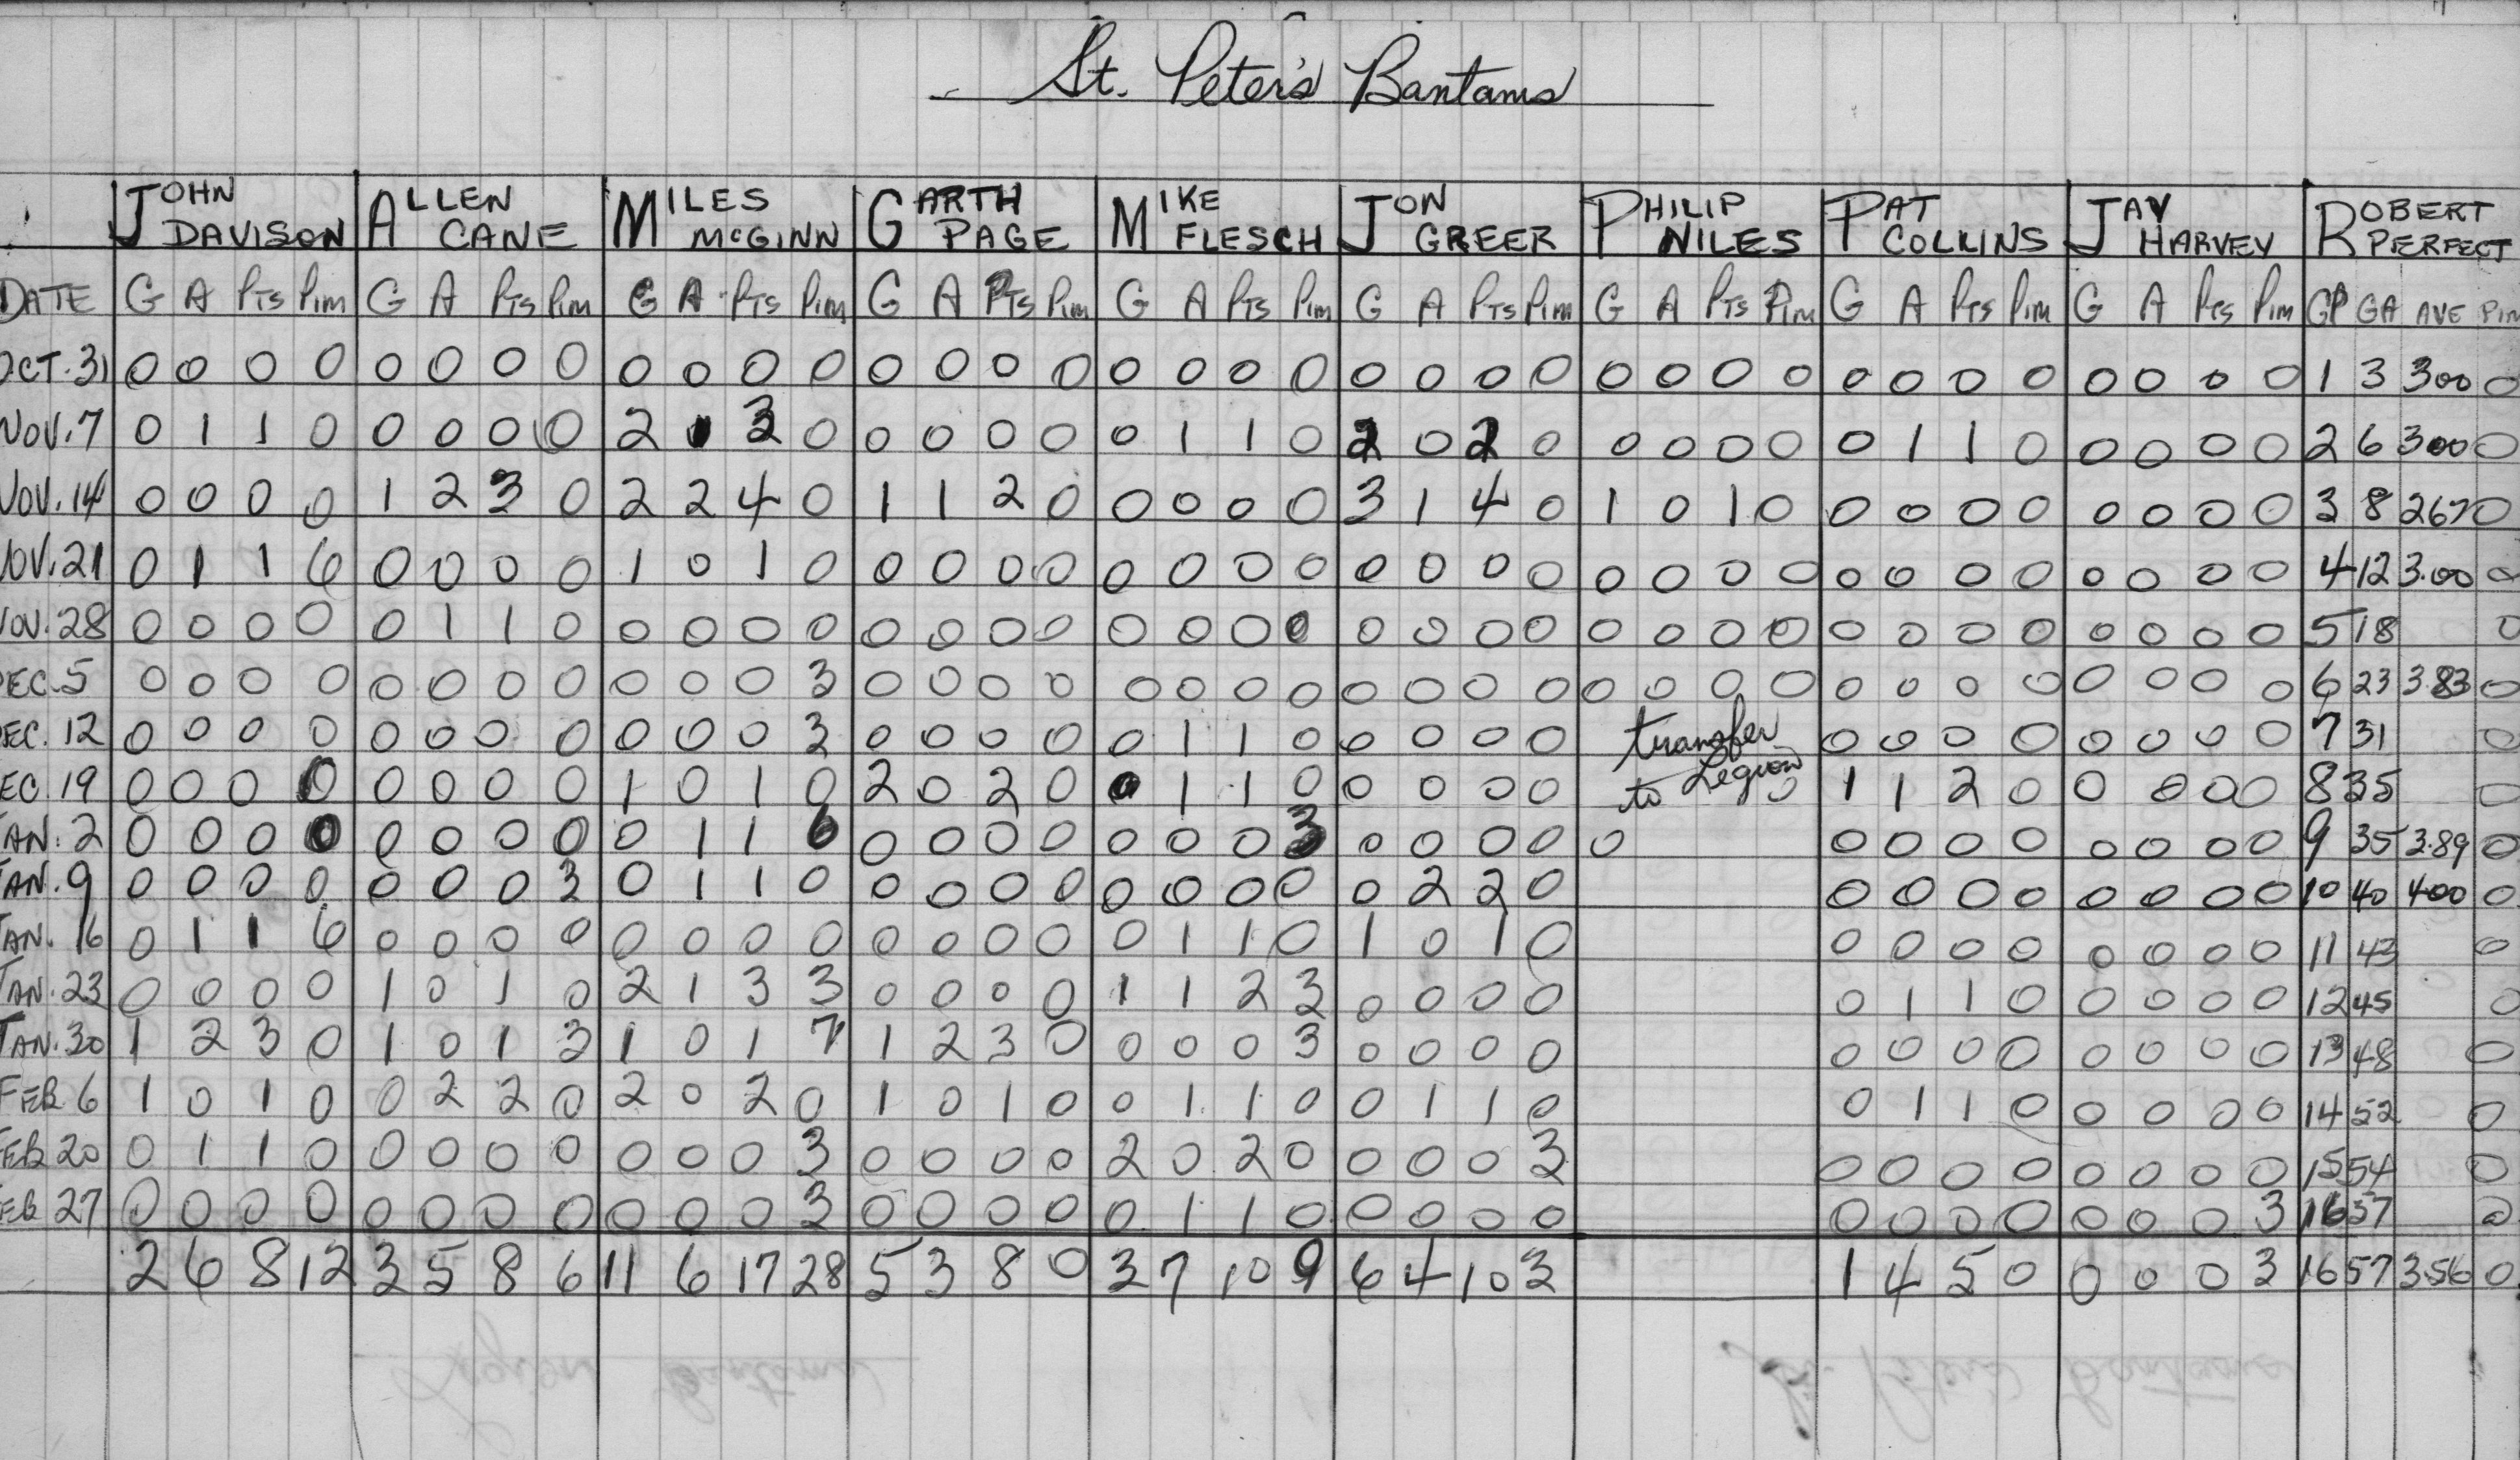 St. Peter's Bantams
JOHN DAVISON ALLEN CANE MILES McGINN GARTH PAGE MIKE FLESCH JON GREER PHILIP NILES PAT COLLINS JAY HARVEY ROBERT PERFECT
DATE G A PTS PIM G A PTS PIM G A PTS PIM G A PTS PIM G A PTS PIM G A PTS PIM G A PTS PIM G A PTS PIM G A PTS PIM GP GA AVE PIM
OCT. 31 0 0 0 0 0 0 0 0 0 0 0 0 0 0 0 0 0 0 0 0 0 0 0 0 0 0 0 0 0 0 0 0 0 0 0 0 1 3 300 0
NOV. 7 0 1 1 0 0 0 0 0 2 1 3 0 0 0 0 0 0 1 1 0 2 0 2 0 0 0 0 0 0 1 1 0 0 0 0 0 2 6 300 0
NOV. 14 0 0 0 0 1 2 3 0 2 2 4 0 1 1 2 0 0 0 0 0 3 1 4 0 1 0 1 0 0 0 0 0 0 0 0 0 3 8 267 0
NOV. 21 0 1 1 6 0 0 0 0 1 0 1 0 0 0 0 0 0 0 0 0 0 0 0 0 0 0 0 0 0 0 0 0 0 0 0 0 4 12 3.00 0
NOV. 28 0 0 0 0 0 1 1 0 0 0 0 0 0 0 0 0 0 0 0 0 0 0 0 0 0 0 0 0 0 0 0 0 0 0 0 0 5 18 0
DEC. 5 0 0 0 0 0 0 0 0 0 0 0 3 0 0 0 0 0 0 0 0 0 0 0 0 0 0 0 0 0 0 0 0 0 0 0 0 6 23 3.83 0
DEC. 12 0 0 0 0 0 0 0 0 0 0 0 3 0 0 0 0 0 1 1 0 0 0 0 0 transfer 0 0 0 0 0 0 0 0 7 31 0
DEC. 19 0 0 0 0 0 0 0 0 1 0 1 0 2 0 2 0 0 1 1 0 0 0 0 0 to Legion 0 1 1 2 0 0 0 0 0 8 35 0
JAN. 2 0 0 0 0 0 0 0 0 0 1 1 6 0 0 0 0 0 0 0 3 0 0 0 0 0 0 0 0 0 0 0 0 0 9 35 3.89 0
JAN. 9 0 0 0 0 0 0 0 3 0 1 1 0 0 0 0 0 0 0 0 0 0 2 2 0 0 0 0 0 0 0 0 0 10 40 400 0
JAN. 16 0 1 1 6 0 0 0 0 0 0 0 0 0 0 0 0 0 1 1 0 1 0 1 0 0 0 0 0 0 0 0 0 11 43 0
JAN. 23 0 0 0 0 1 0 1 0 2 1 3 3 0 0 0 0 1 1 2 3 0 0 0 0 0 1 1 0 0 0 0 0 12 45 0
JAN. 30 1 2 3 0 1 0 1 3 1 0 1 7 1 2 3 0 0 0 0 3 0 0 0 0 0 0 0 0 0 0 0 0 13 48 0
FEB 6 1 0 1 0 0 2 2 0 2 0 2 0 1 0 1 0 0 1 1 0 0 1 1 0 0 1 1 0 0 0 0 0 14 52 0
FEB 20 0 1 1 0 0 0 0 0 0 0 0 3 0 0 0 0 2 0 2 0 0 0 0 3 0 0 0 0 0 0 0 0 15 54 0
FEB 27 0 0 0 0 0 0 0 0 0 0 0 3 0 0 0 0 0 1 1 0 0 0 0 0 0 0 0 0 0 0 0 3 16 57 0
2 6 8 12 3 5 8 6 11 6 17 28 5 3 8 0 3 7 10 9 6 4 10 3 1 4 5 0 0 0 0 3 16 57 3.56 0